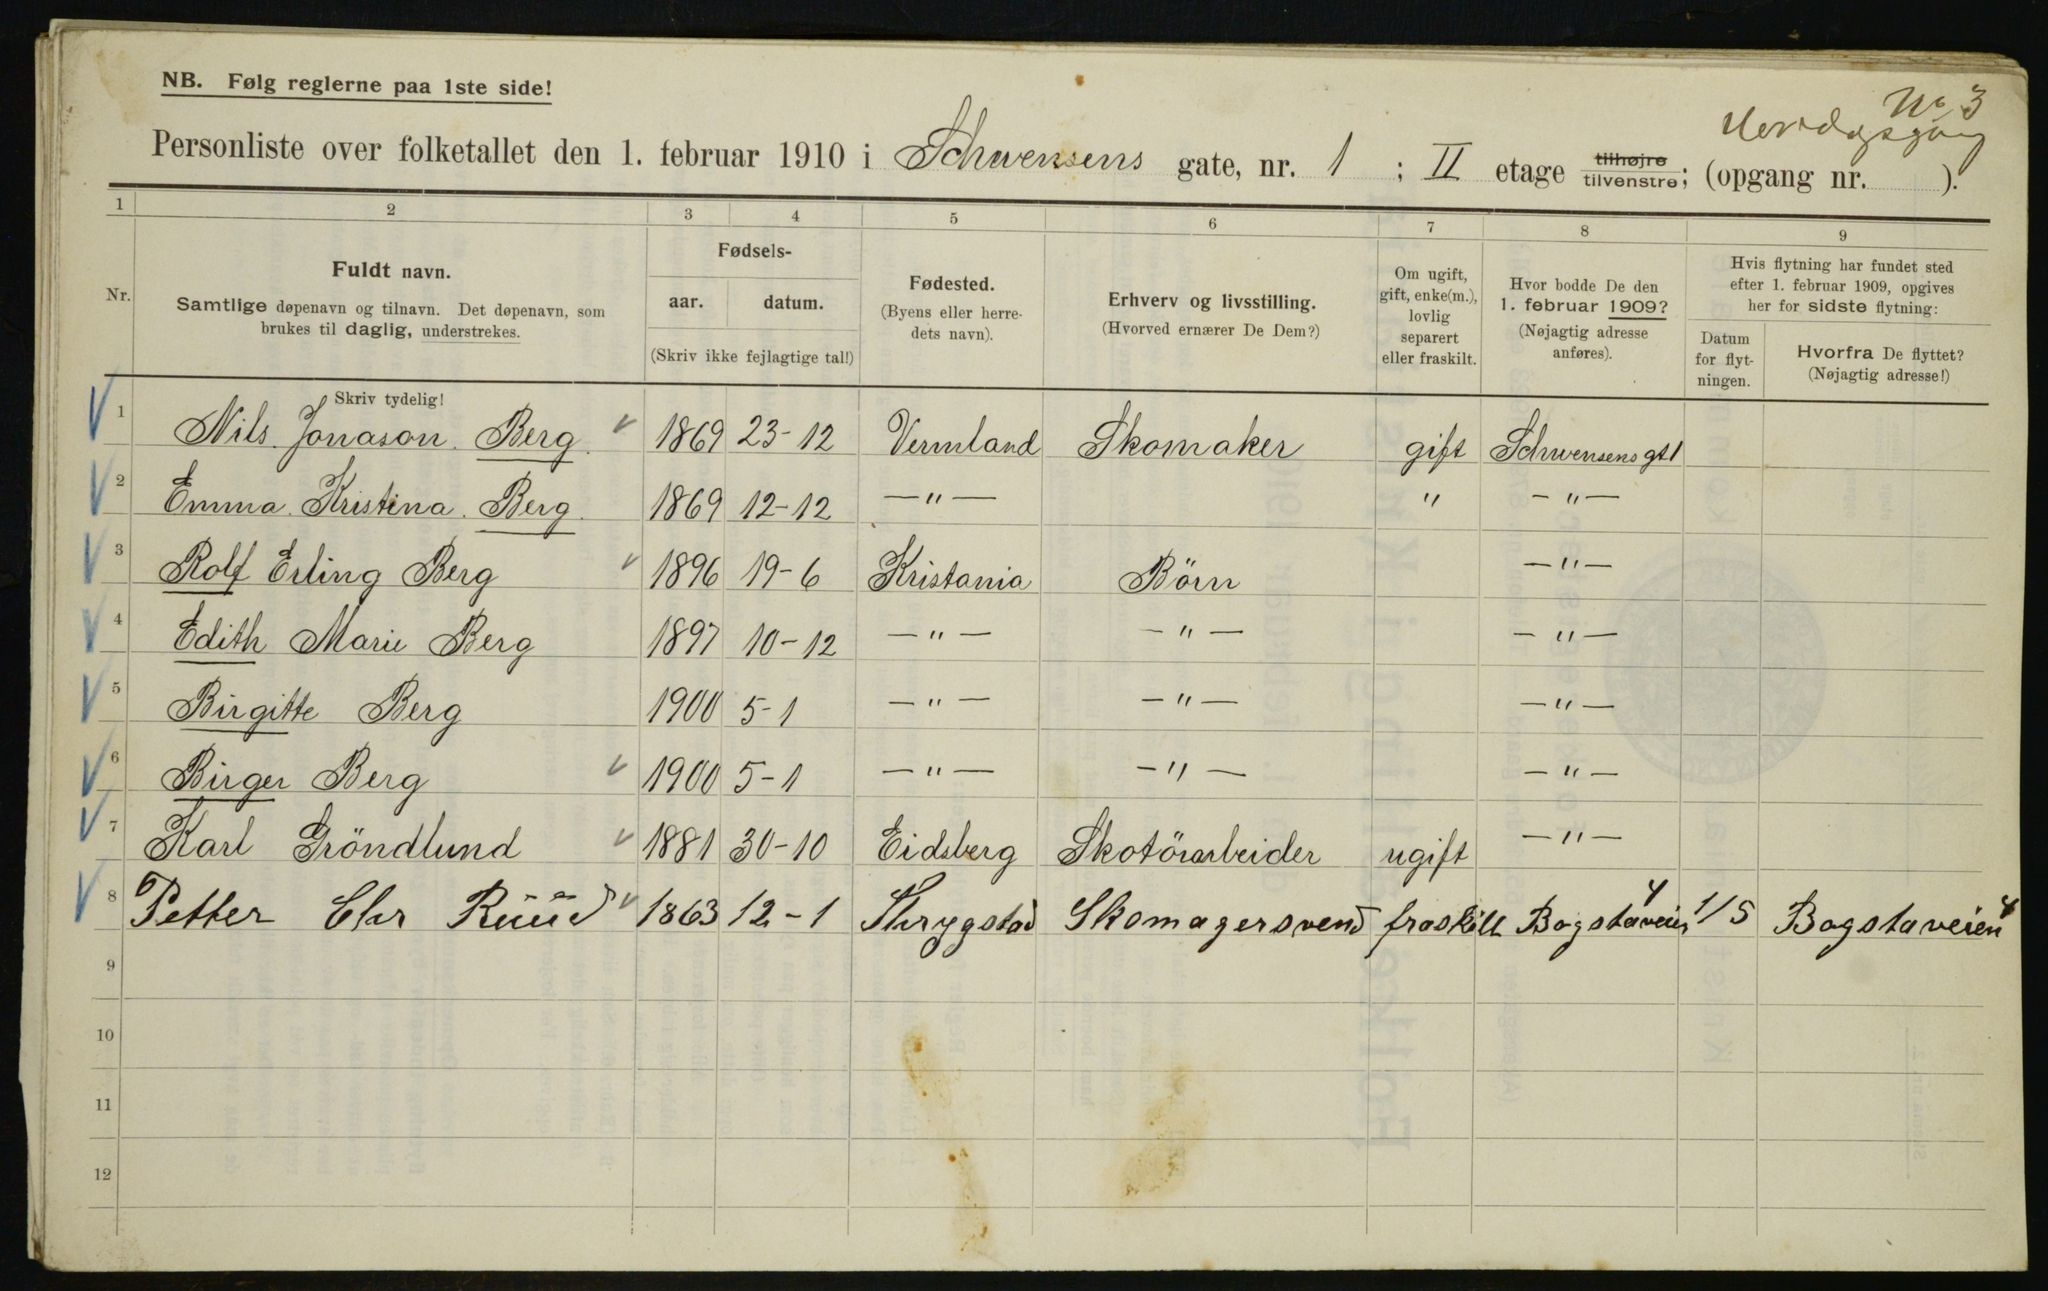 NB. Følg reglerne paa 1ste side!
No 3
Personliste over folketallet den 1. februar 1910 i Schwensens gate, nr. 1 ; II etage tilhøjre tilvenstre; (opgang nr. ).
1 2 3 4 5 6 7 8 9
Nr.
Fuldt navn.
Samtlige døpenavn og tilnavn. Det døpenavn, som
brukes til daglig, understrekes.
Fødsels-
aar. datum.
(Skriv ikke fejlagtige tal!)
Fødested.
(Byens eller herre-
dets navn).
Erhverv og livsstilling.
(Hvorved ernærer De Dem?)
Om ugift,
gift, enke(m.),
lovlig
separert
eller fraskilt.
Hvor bodde De den
1. februar 1909?
(Nøjagtig adresse
anføres).
Hvis flytning har fundet sted
efter 1. februar 1909, opgives
her for sidste flytning:
Datum
for flyt-
ningen.
Hvorfra De flyttet?
(Nøjagtig adresse!)
Skriv tydelig!
1 Nils. Jonason. Berg. 1869 23-12 Vermland Skomaker gift Schwensens gt 1
2 Emma. Kristina. Berg. 1869 12-12 —"— " —"—
3 Rolf Erling Berg 1896 19-6 Kristania Börn —"—
4 Edith Marie Berg 1897 10-12 —"— —"— —"—
5 Birgitte Berg 1900 5-1 —"— —"— —"—
6 Birger Berg 1900 5-1 —"— —"— —"—
7 Karl Gröndlund 1881 30-10 Eidsberg Skotörarbeider ugift —"—
8 Petter Chr Ruud 1863 12-1 Skomagersvend fraskilt Bogstaveien 4 1/5 Bogstaveien 4
9
10
11
12